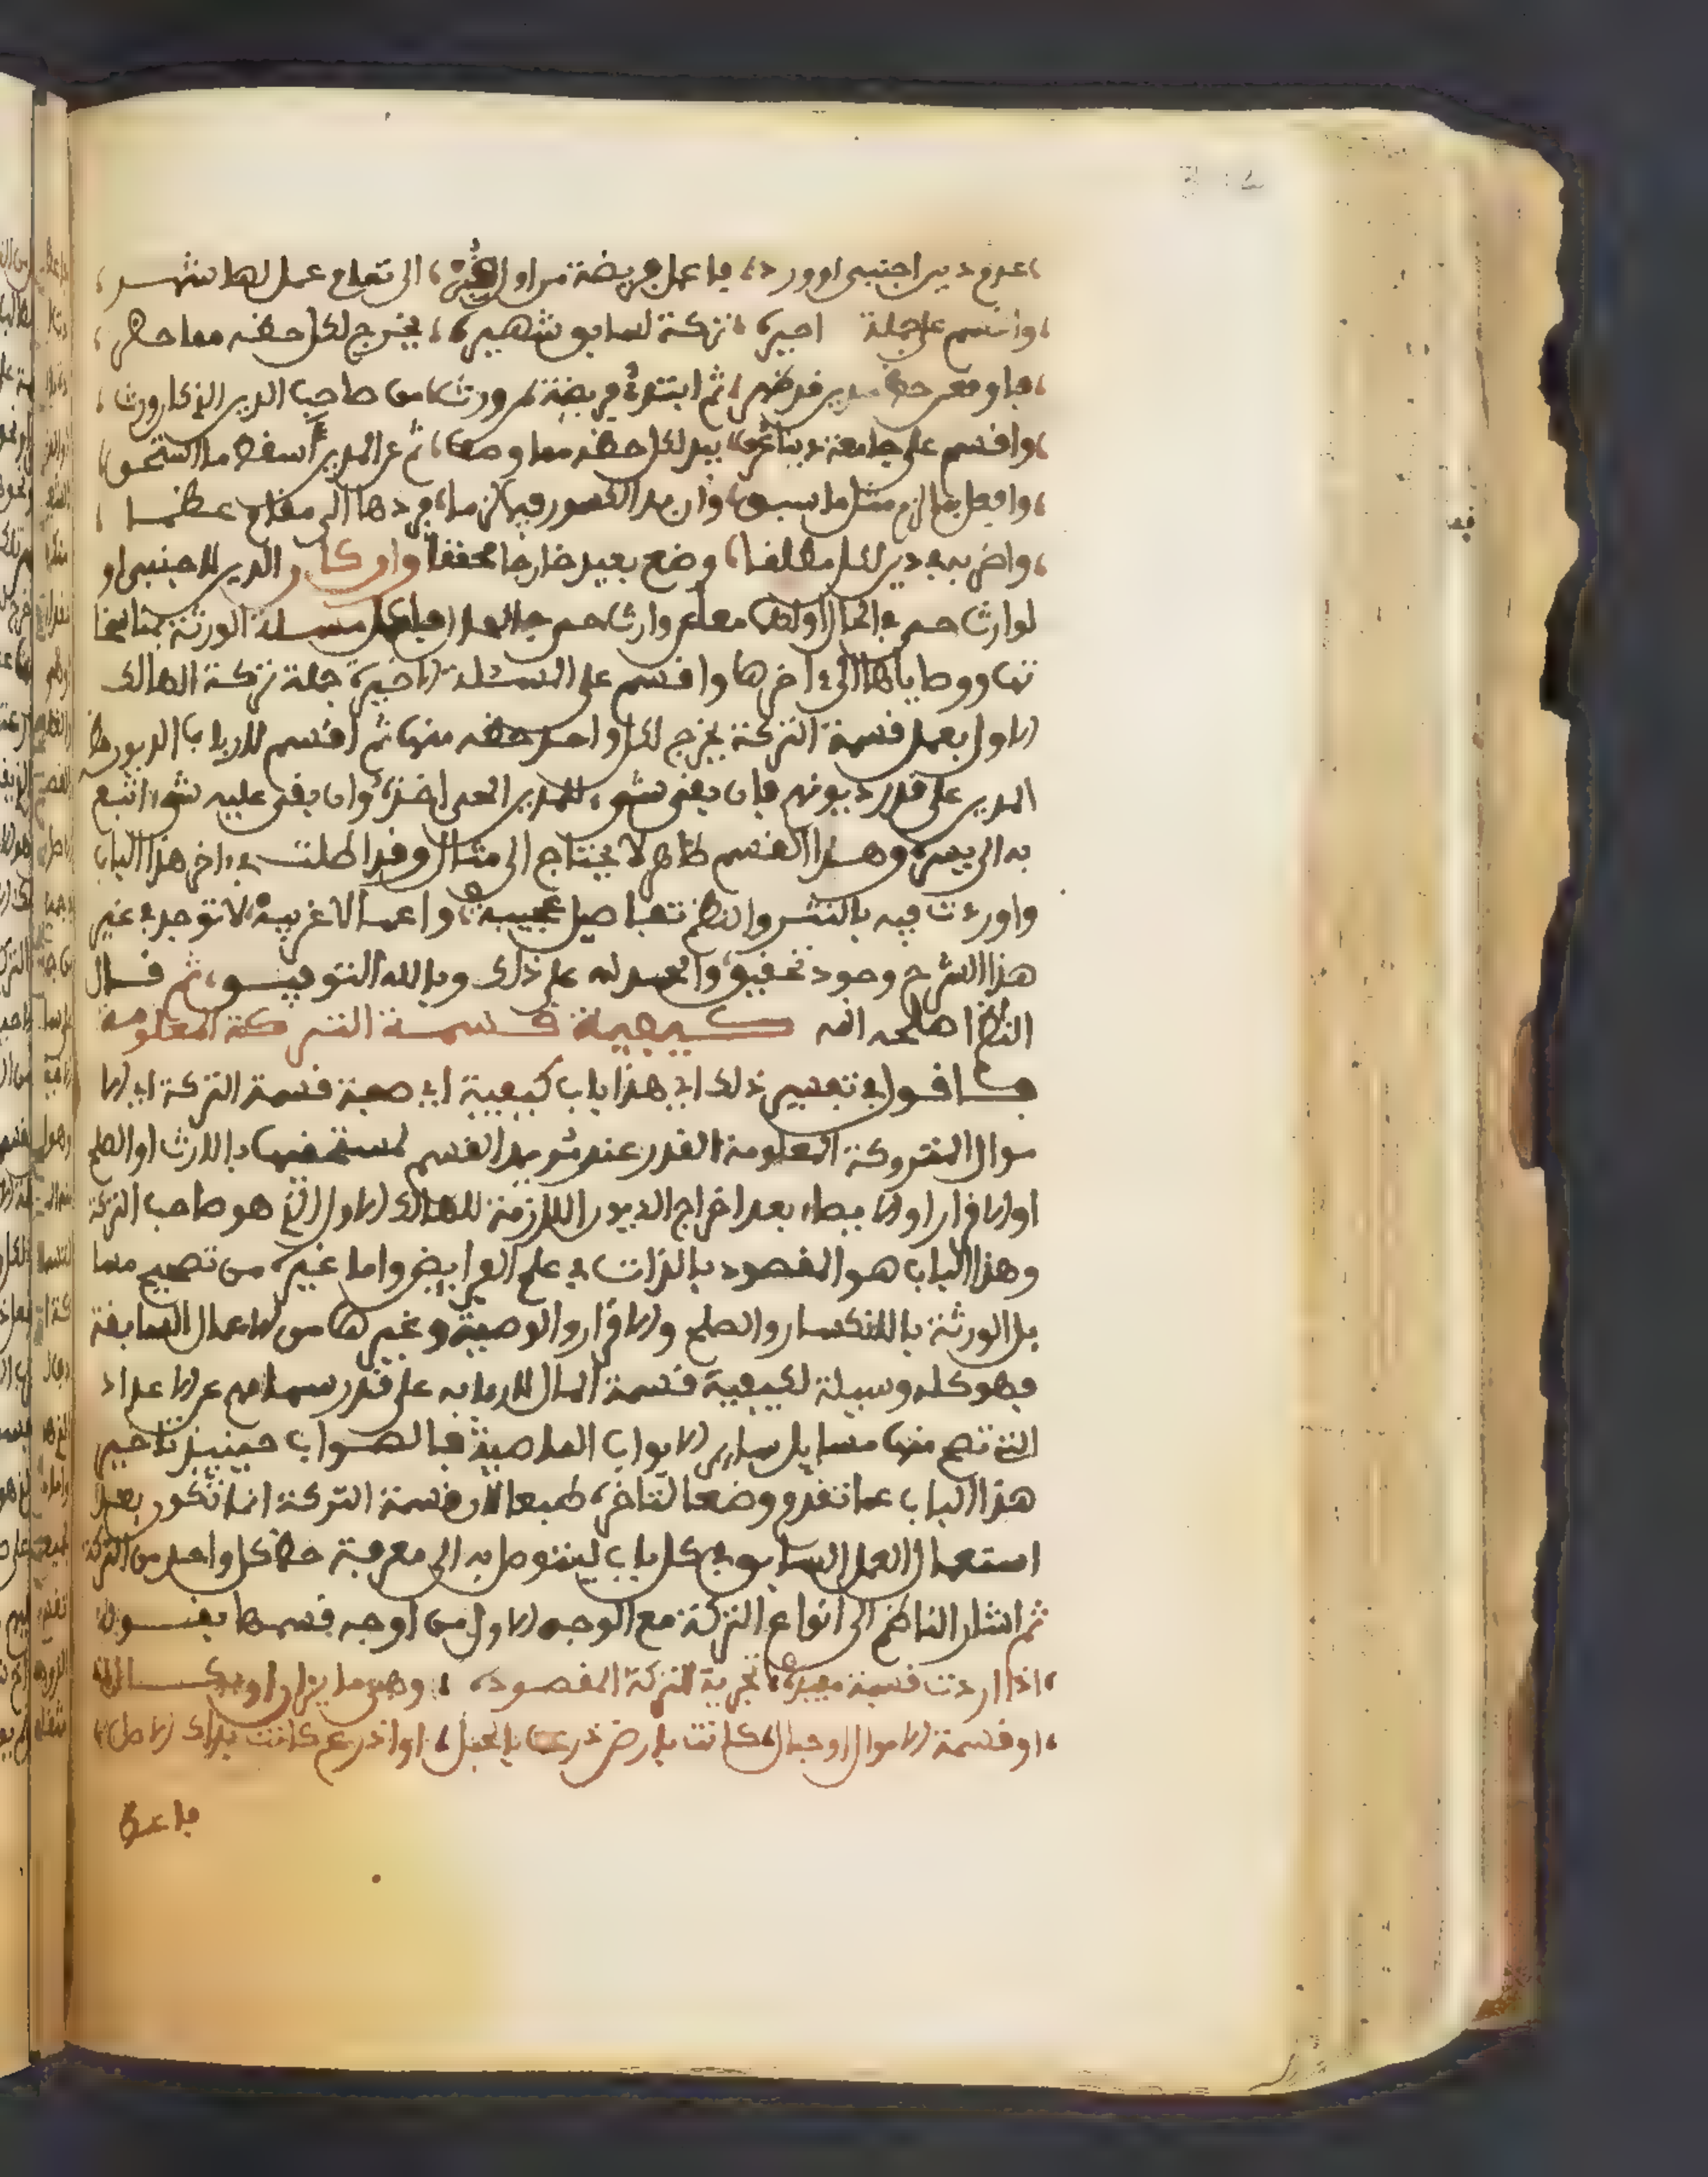 عدم دين اجنبي او ورد، فاعمل فريضة من اول الى تمام عمل لها شهر،
واقسم على جملة اخير، تركة لسابق شهير، يخرج لكل حقه مما حصل،
ثم ابتدئ فريضة لمن ورث، من صاحب الدين الذي كان ورث،
واقسم على جامعة بيد لكل حظه مما وصف، ثم عن المدين اسقط ما استحق،
وافعل بما لزم مثل ما سبق، وان بدا الكسور في ردها الى مقام عظما،
واضربه في دين لكل مطلقا، وضع بعيد خارجا محققا وان كان الدين لاجنبي او
لوارث حي في الحال الاولى مع وارث حي مسئلة الورثة
ووصاياها الى اخرها واقسم على المسئلة الاخيرة جملة تركة الهالك
الاول بعمل قسمة التركة يخرج لكل واحد حقه منها ثم اقسم لارباب الديون حظ
المدين على قدر ديونهم فان بقي شيء للمدين الحي اخذه، وان بقي عليه شيء اتبع
به الى يسره وهذا القسم ظاهر لا يحتاج الى مثال وقد اطلت في اخر هذا الباب
واوردت فيه بالنثر والنظم تفاصيل عجيبة، واعمالا غريبة، لا توجد في غير
هذا الشرح وجود تحقيق، والحمد لله على ذلك وبالله التوفيق، ثم قال
الناظم اصلحه الله كيفية قسمة التركة المعلومة
فاقول في تفسير ذلك اي هذا باب كيفية اي صفة قسمة التركة اي الا
موال المتروكة المعلومة القدر عند مريد القسم لمستحقها بالارث او الصلح
او الاقرار او الايصاء بعد اخراج الديون اللازمة للهالك الاول الذي هو صاحب التركة
وهذا الباب هو المقصود بالذات في علم الفرايض واما غيره من تصحيح مسا
يل الورثة بالانكسار والصلح والاقرار والوصية وغيرها من الاعمال السابقة
فهو كله وسيلة لكيفية قسمة المال لاربابه على قدر سهامهم من الاعداد
التي تصح منها مسايل ساير الابواب الماضية فالصواب حينيذ تاخير
هذا الباب عما تقدم وضعا لتاخره طبعا لان قسمة التركة انما تكون بعد
استعمال العمل السابق في كل باب ليتوصل به الى معرفة حظ كل واحد من التركة
ثم اشار الناظم الى انواع التركة مع الوجه الاول من اوجه قسمها بقوله
اذا اردت قسمة مفيدة، تجزية التركة المقصودة، وهي ما يزار او يكال
او قسمة الاموال او حبال، كانت بارض ذرعت بالحبل، او اذرع كانت بذاك الاصل،
فاعط